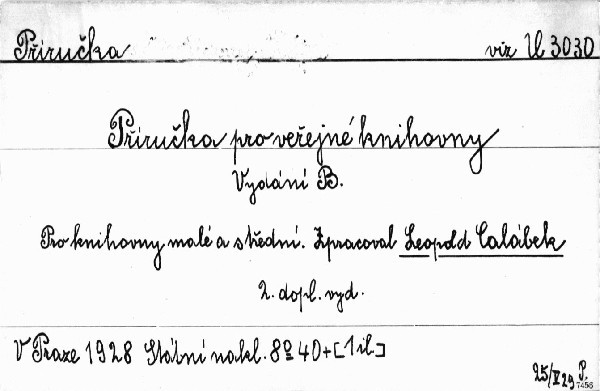 Příručka viz U 3030
Příručka pro veřejné knihovny
Vydání B.
Pro knihovny malé a střední. Zpracoval Leopold Calábek
2. dopl. vyd.
V Praze 1928 Státní nakl. 8º 40+[1 il.]
25/V 29 P.
7456